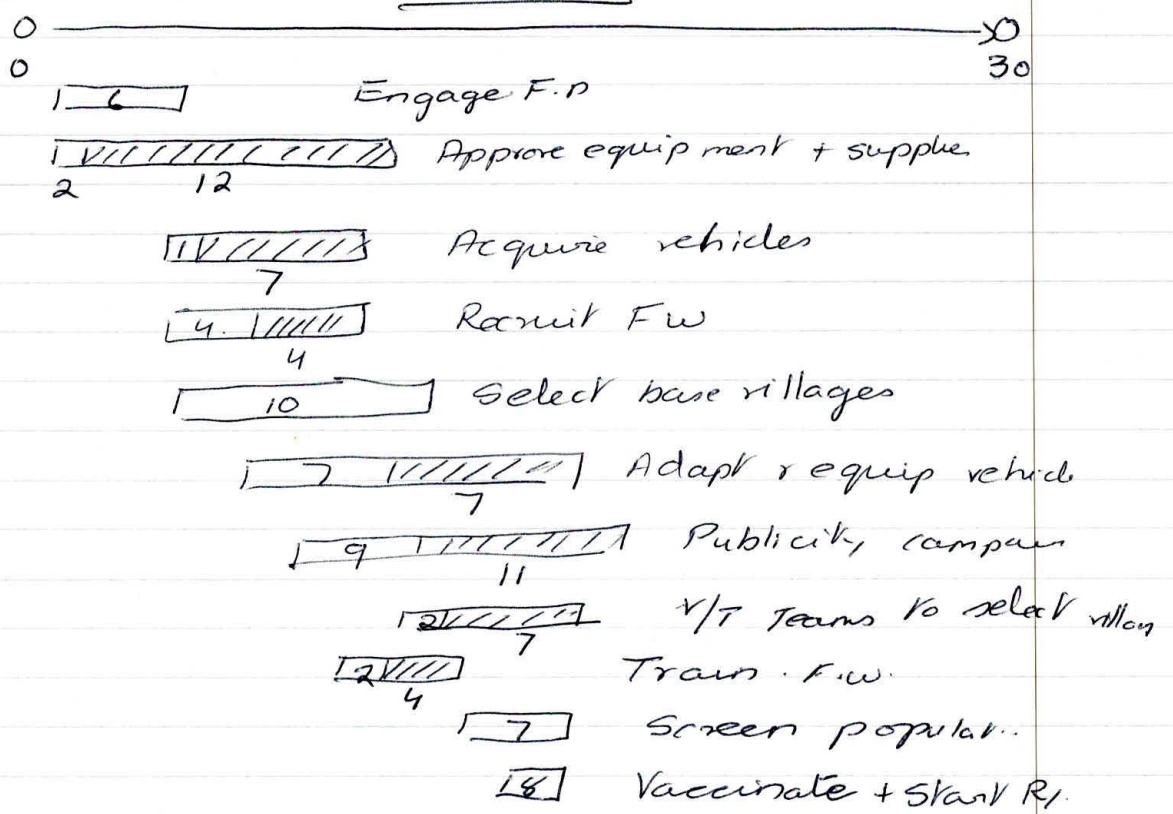 0 0
0 30
6 Engage F.P
Approve equipment + supplies
2 12
1 Acquire vehicles
7
4. Recruit FW
4
10 Select base villages
7 Adapt & equip vehicle
7
9 Publicity campaign
11
2 V/T Teams to select villag
7
2 Train. F.W.
4
7 Screen popular..
8 Vaccinate + Start Rx.